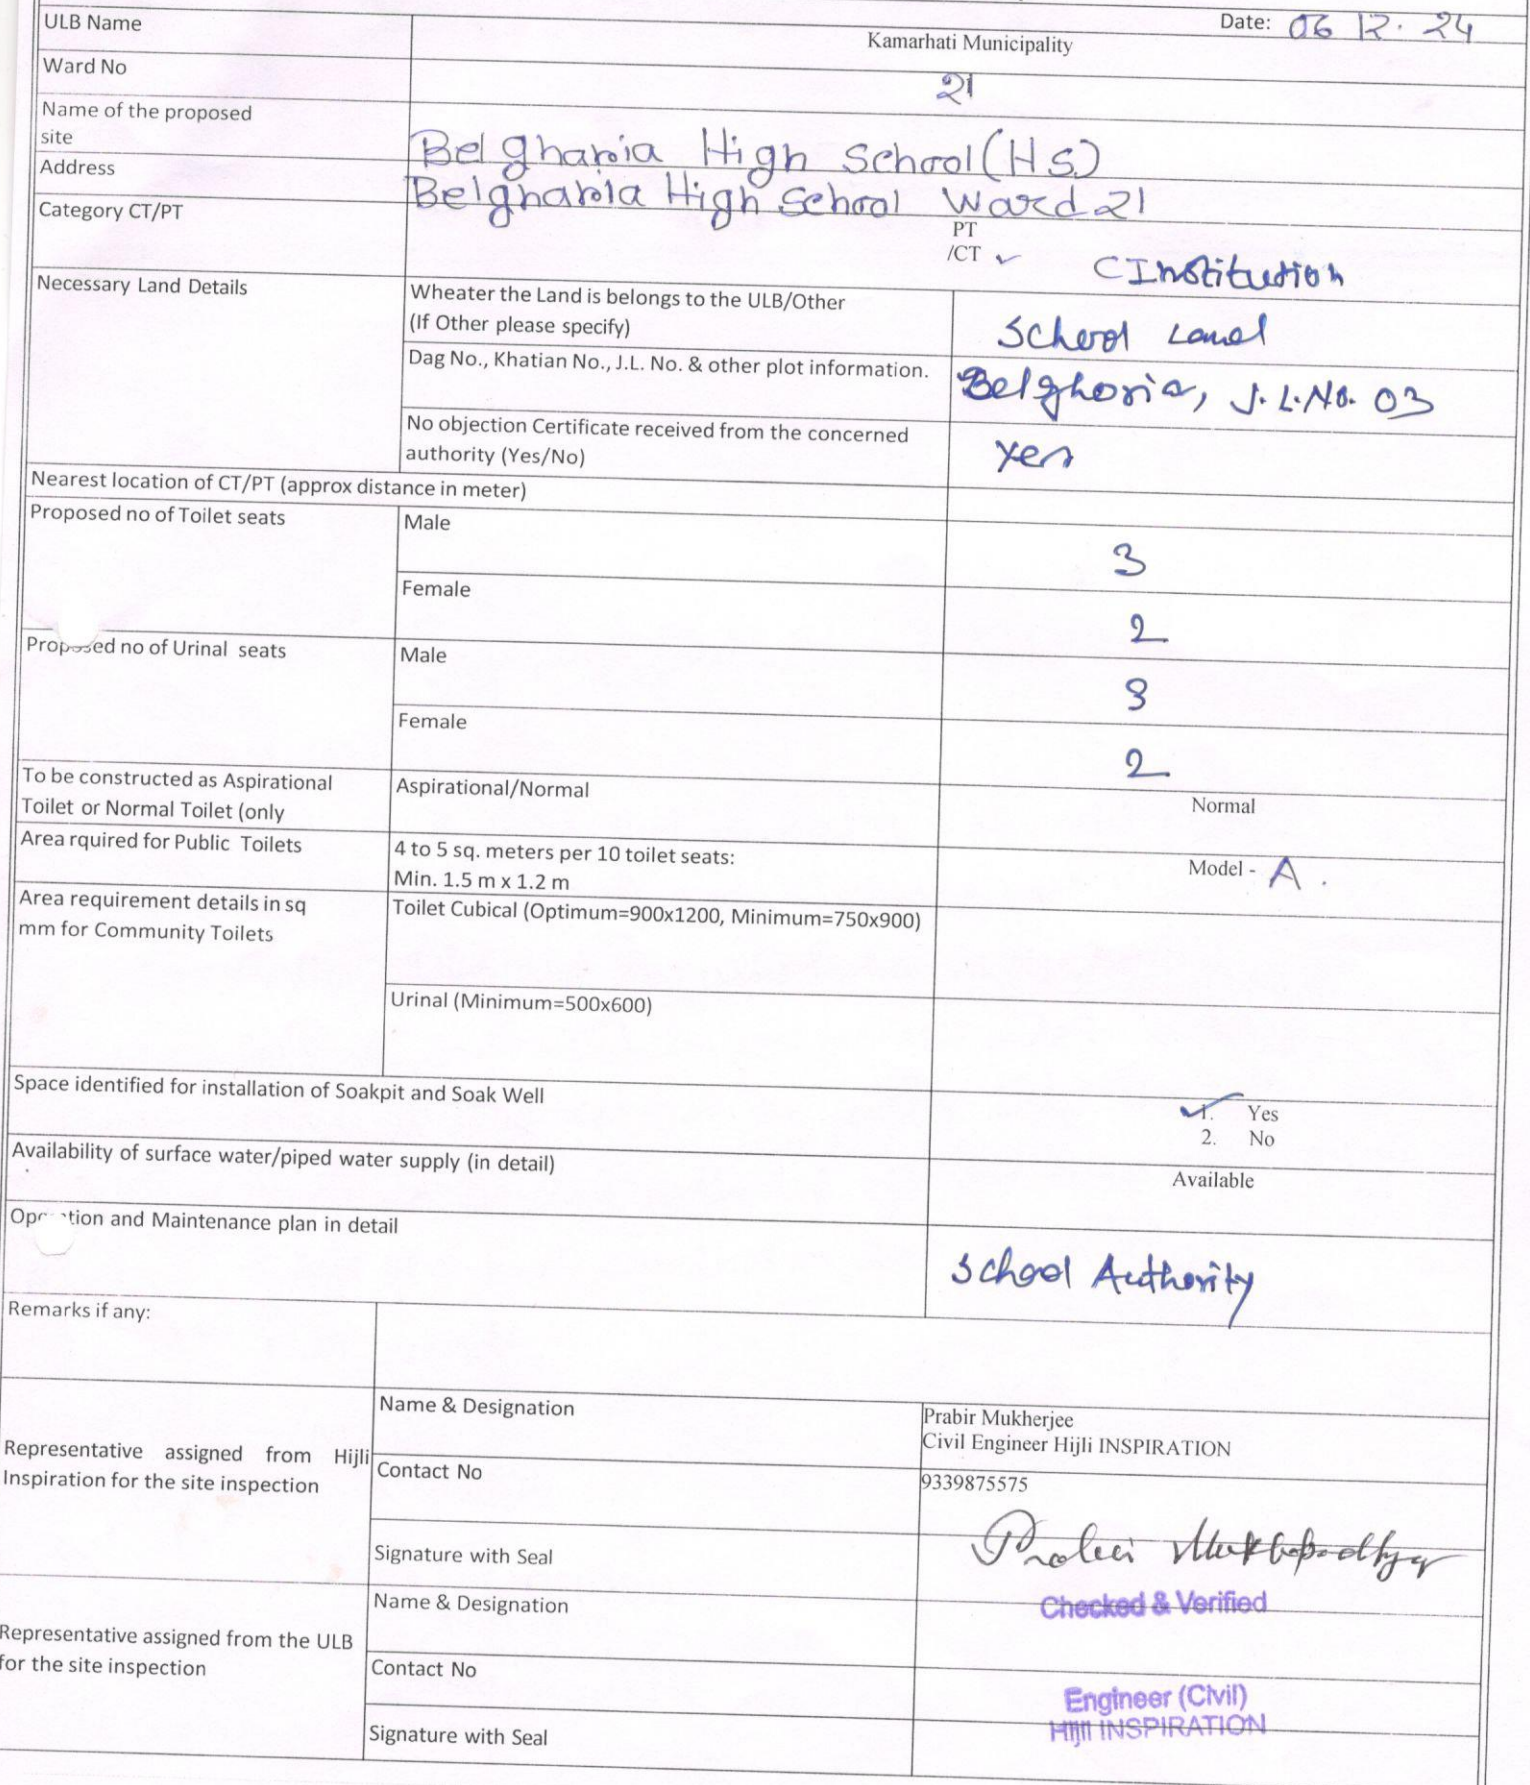 Date: 06 12. 24
ULB Name
Kamarhati Municipality
Ward No
21
Name of the proposed
site
Belgharia High School (H S.)
Address
Belgharia High School Ward 21
Category CT/PT
PT
/CT ✓ CInstitution
Necessary Land Details
Wheater the Land is belongs to the ULB/Other
(If Other please specify)
School Land
Dag No., Khatian No., J.L. No. & other plot information.
Belghoria, J.L.No. 03
No objection Certificate received from the concerned
authority (Yes/No)
Yes
Nearest location of CT/PT (approx distance in meter)
Proposed no of Toilet seats
Male
3
Female
2
Proposed no of Urinal seats
Male
3
Female
2
To be constructed as Aspirational
Toilet or Normal Toilet (only
Aspirational/Normal
Normal
Area rquired for Public Toilets
4 to 5 sq. meters per 10 toilet seats:
Min. 1.5 m x 1.2 m
Model - A .
Area requirement details in sq
mm for Community Toilets
Toilet Cubical (Optimum=900x1200, Minimum=750x900)
Urinal (Minimum=500x600)
Space identified for installation of Soakpit and Soak Well
✓1. Yes
2. No
Availability of surface water/piped water supply (in detail)
Available
Operation and Maintenance plan in detail
School Authority
Remarks if any:
Representative assigned from Hijli
Inspiration for the site inspection
Name & Designation
Prabir Mukherjee
Civil Engineer Hijli INSPIRATION
Contact No
9339875575
Signature with Seal
Prabir Mukhopadhyay
Checked & Verified
Representative assigned from the ULB
for the site inspection
Name & Designation
Contact No
Engineer (Civil)
Hijli INSPIRATION
Signature with Seal